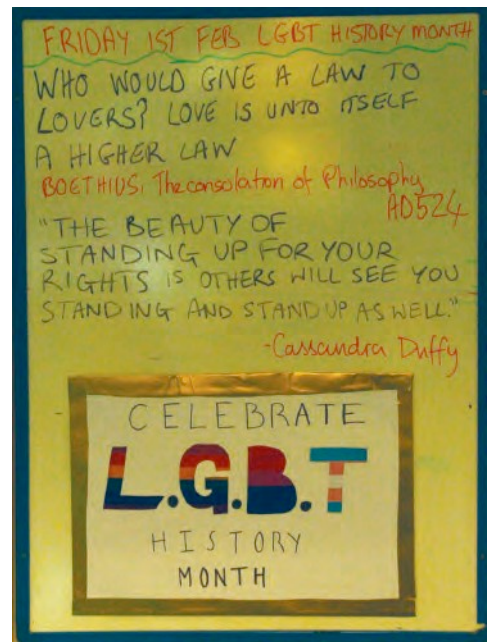 FRIDAY 1ST FEB LGBT HISTORY MONTH
WHO WOULD GIVE A LAW TO
LOVERS? LOVE IS UNTO ITSELF
A HIGHER LAW
BOETHIUS, The consolation of Philosophy
AD524
"THE BEAUTY OF
STANDING UP FOR YOUR
RIGHTS IS OTHERS WILL SEE YOU
STANDING AND STAND UP AS WELL."
-Cassandra Duffy
CELEBRATE
L.G.B.T
HISTORY
MONTH